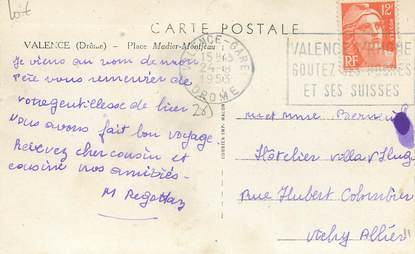 Loit
CARTE POSTALE
VALENCE (Drôme) - Place Madier-Montjau
VALENCE-GARE
15H45
24-
1953
DROME
12F
RF
VALENCE DROME
GOUTEZ SES POGNES
ET SES SUISSES
Je viens au nom de mon
Père vous remercier de
votre gentillesse de hier.
Nous avons fait bon voyage
Recevez cher cousin et
cousine nos amitiés.
M Regottaz
26)
Mr et Mme
Hotelier villa
rue Hubert Colombier
Vichy Allier